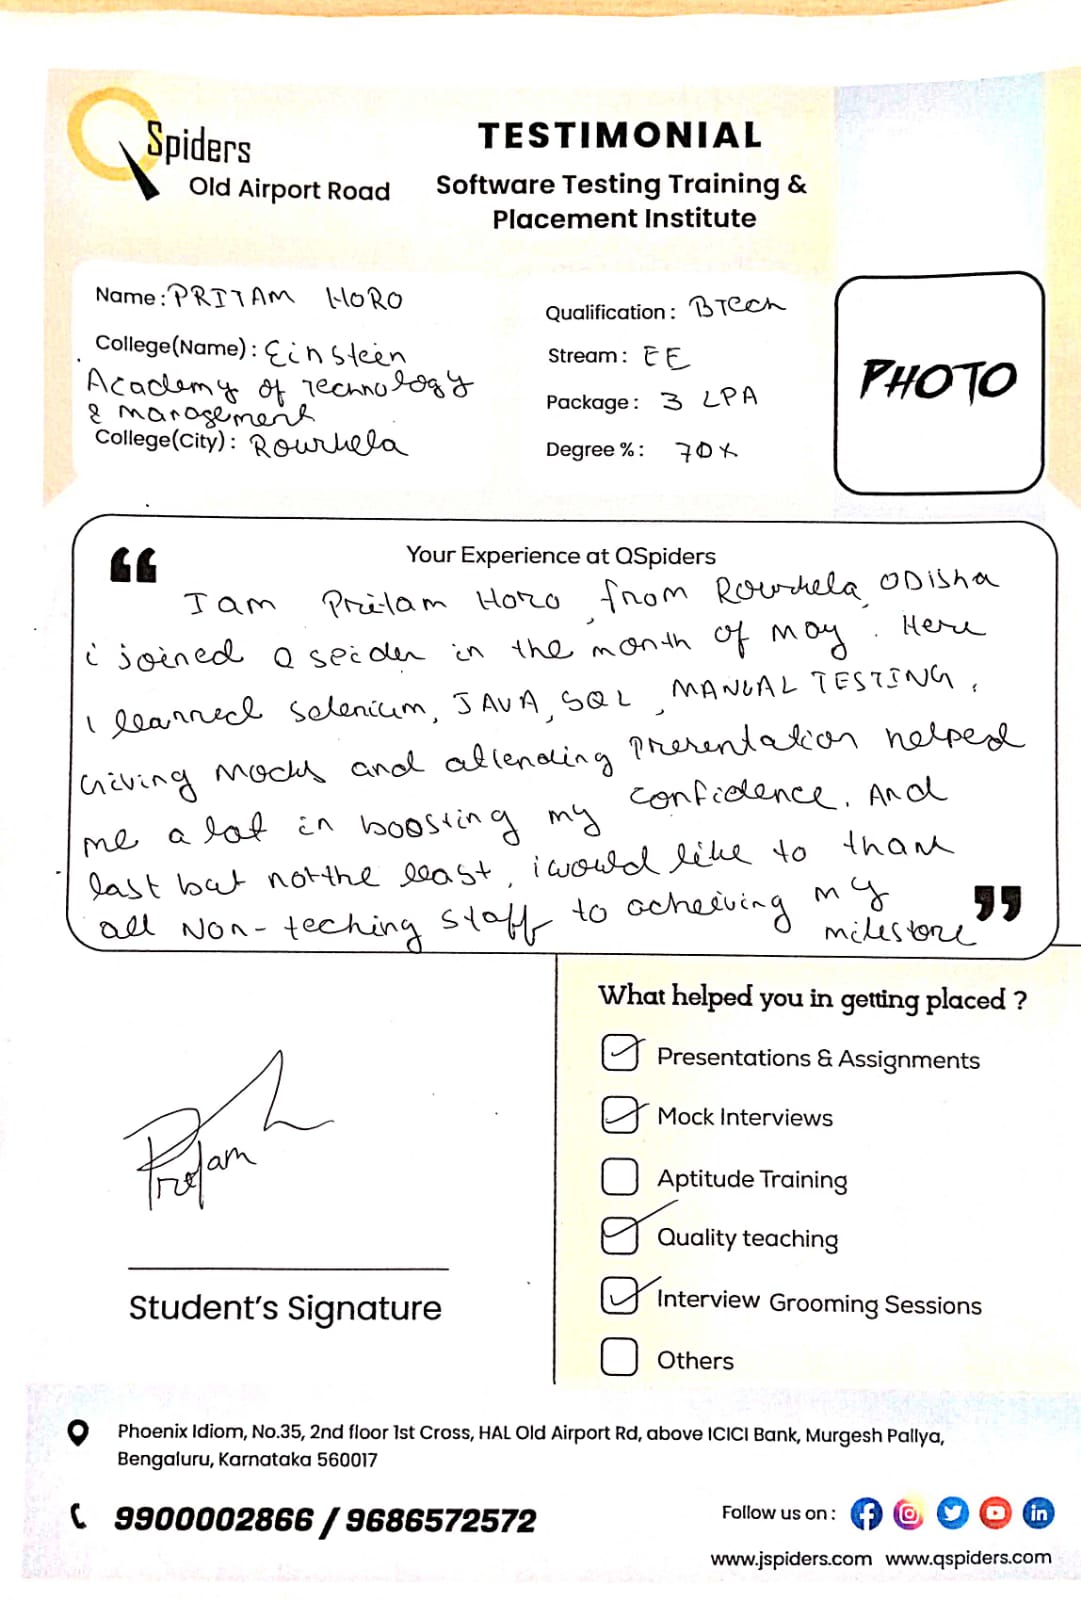 QSpiders
Old Airport Road
TESTIMONIAL
Software Testing Training &
Placement Institute
Name: PRITAM HORO
College(Name): Einstein
Academy of Technology
& management
College(City): Rourkela
Qualification: BTech
Stream: EE
Package: 3 LPA
Degree %: 70%
PHOTO
“
Your Experience at QSpiders
I am Pritam Horo, from Rourkela, ODisha
i joined Q seider in the month of may. Here
I learned Selenium, JAVA, SQL, MANUAL TESTING.
Giving Mocks and attending Presentation helped
me a lot in boosting my confidence. And
last but not the least, i would like to thank
all Non-teching staff to acheiving my
milestone
”
Pritam
Student's Signature
What helped you in getting placed ?
Presentations & Assignments
Mock Interviews
Aptitude Training
Quality teaching
Interview Grooming Sessions
Others
Phoenix Idiom, No.35, 2nd floor 1st Cross, HAL Old Airport Rd, above ICICI Bank, Murgesh Pallya,
Bengaluru, Karnataka 560017
9900002866 / 9686572572
Follow us on :
www.jspiders.com www.qspiders.com